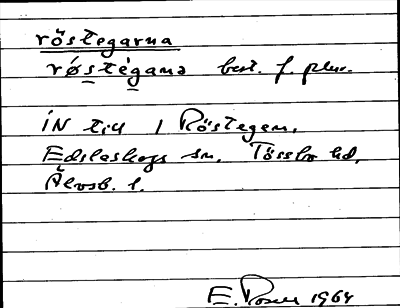 röstegarna
røstégana best. f. plur.
IN till 1 Röstegen,
Edsleskogs sn. Tössbo hd,
Älvsb. l.
E. Rosell 1964